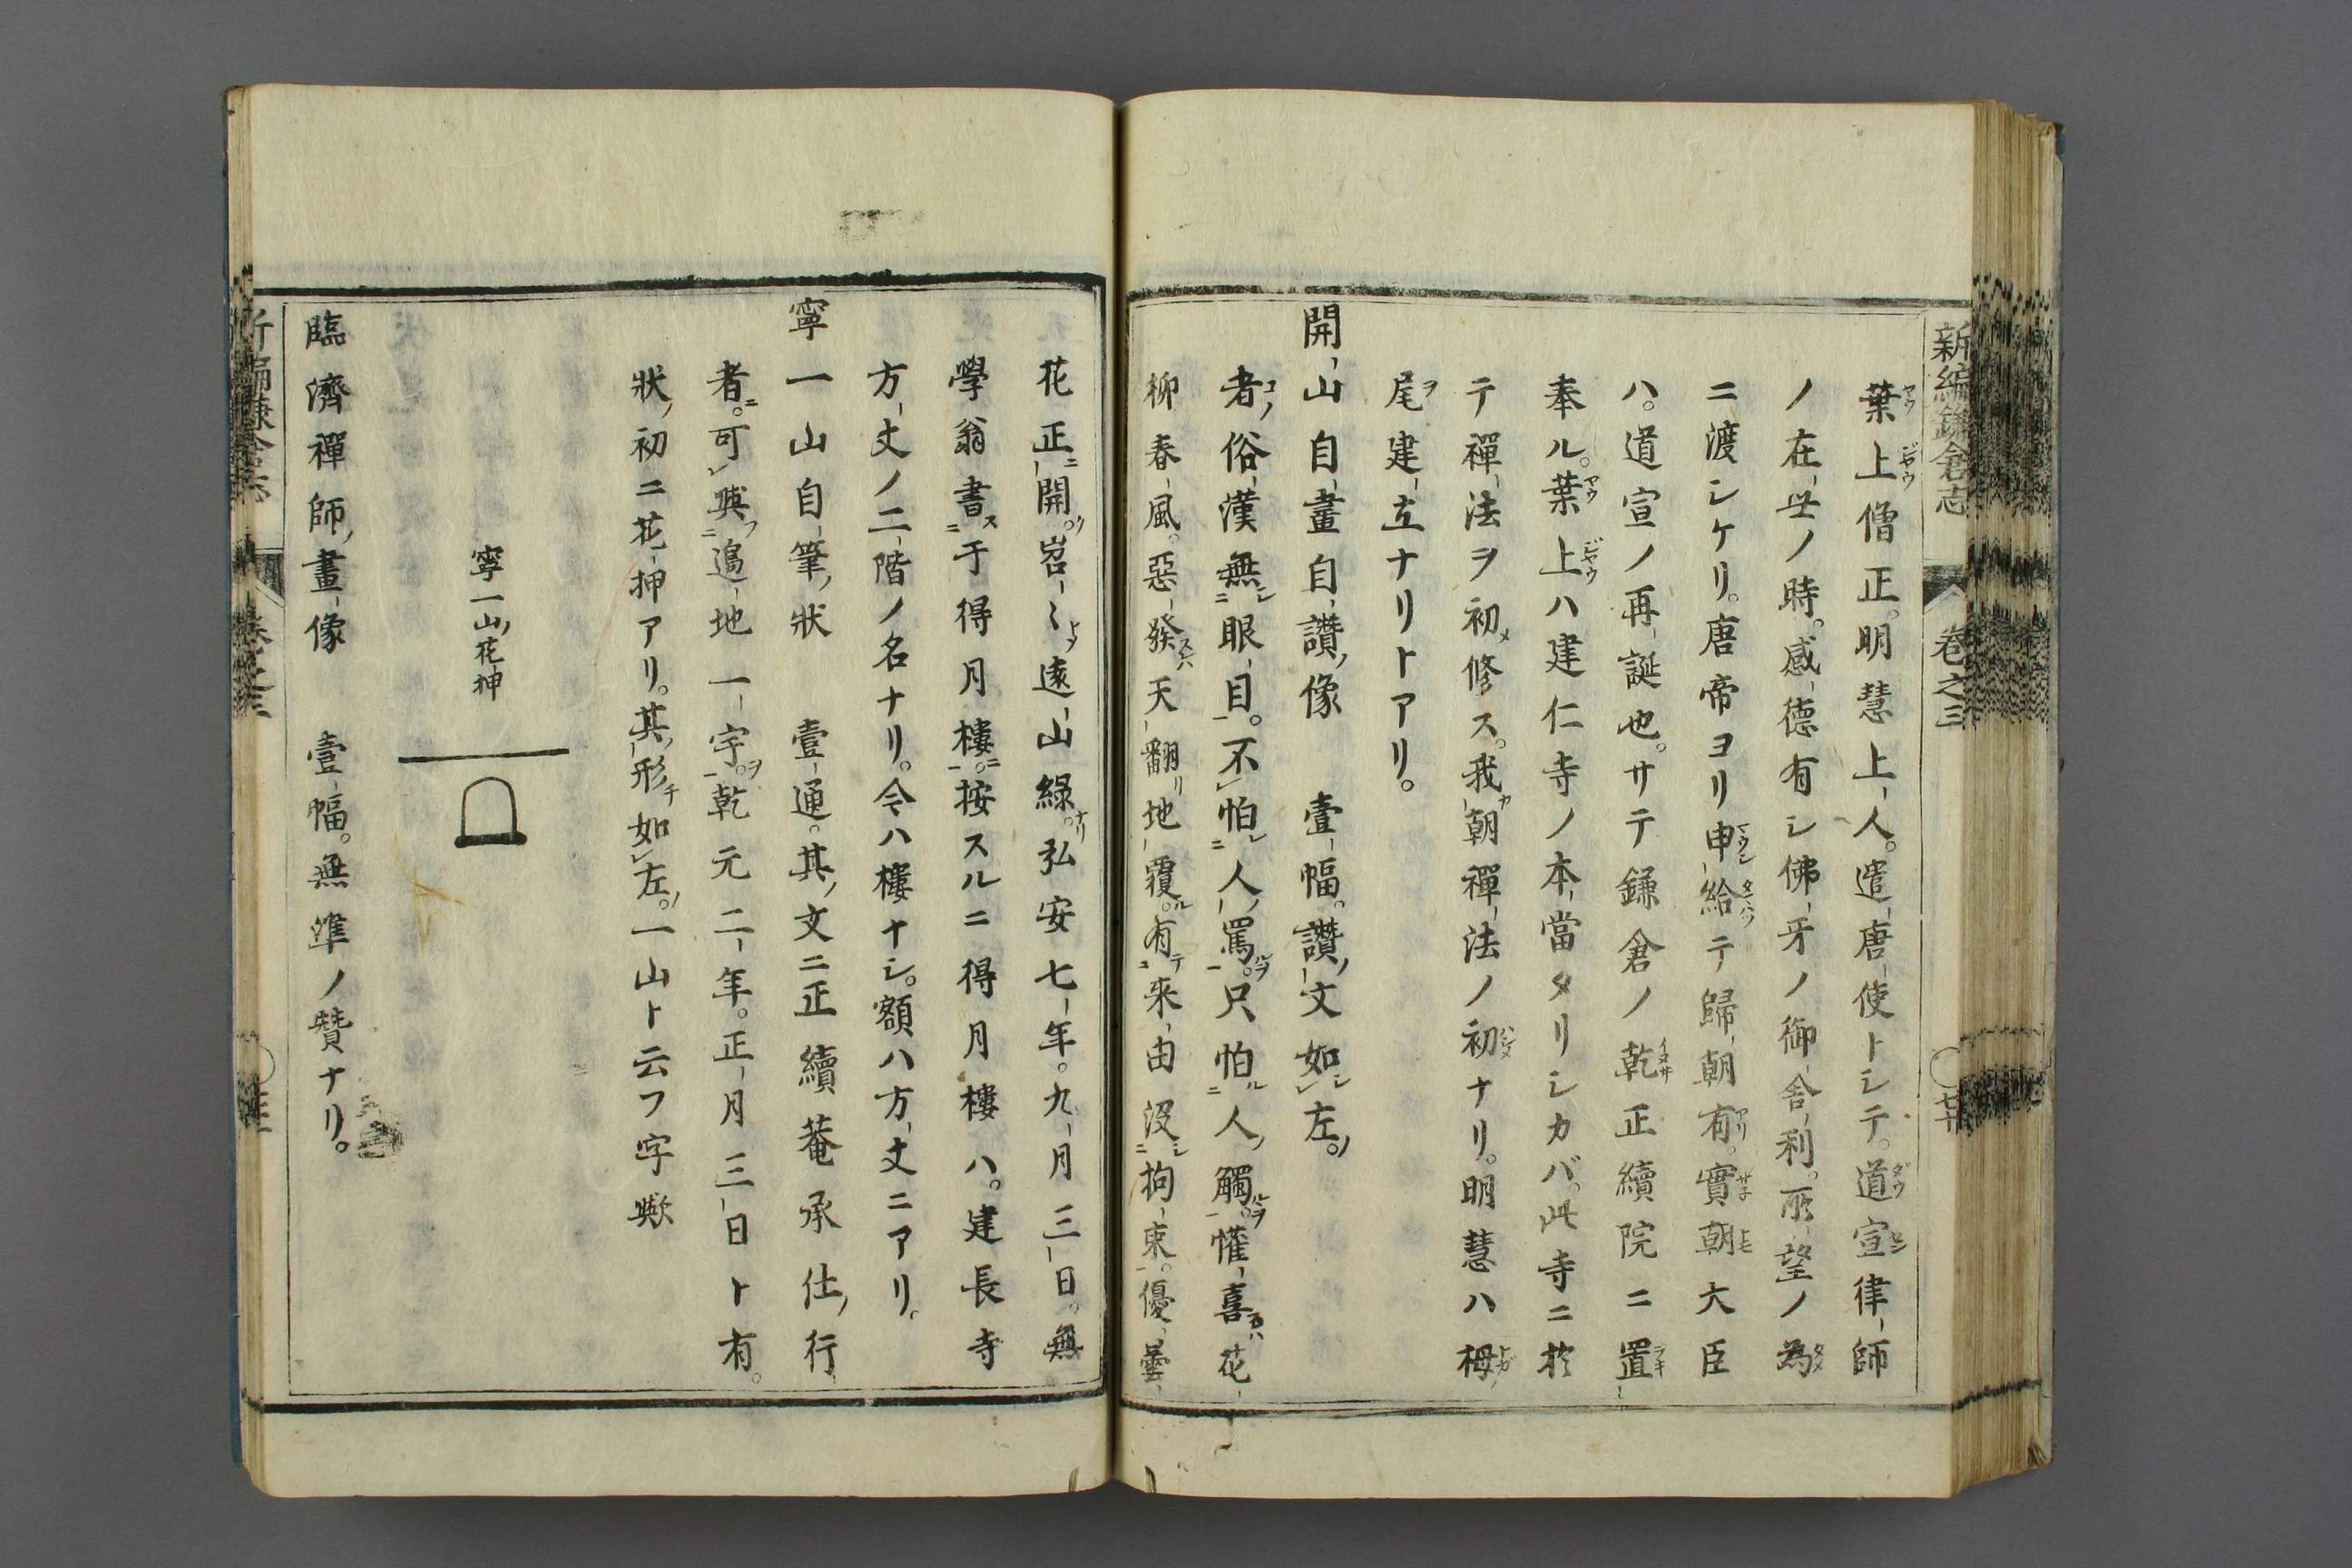 新編鎌倉志 卷之三 〇廿
葉上僧正。明慧上人。遣唐使トシテ。道宣律師
ノ在世ノ時。感德有シ佛牙ノ御舎利。所望ノ為
ニ渡シケリ。唐帝ヨリ申給テ歸朝有。實朝大臣
ハ。道宣ノ再誕也。サテ鎌倉ノ乾正續院ニ置
奉ル。葉上ハ建仁寺ノ本當タリシカバ。此寺ニ於
テ禪法ヲ初修ス。我朝禪法ノ初ナリ。明慧ハ栂
尾建立ナリトアリ。
開山自畫自讚像 壹幅。讚文如左。
者俗漢無眼目。不怕人罵。只怕人觸懽喜花
柳春風。惡發天翻地覆。有來由沒拘束。優曇
花正開。岧〻遠山綠。弘安七年。九月三日。無
學翁書于得月樓。按スルニ得月樓ハ。建長寺
方丈ノ二階ノ名ナリ。今ハ樓ナシ。額ハ方丈ニアリ。
寧一山自筆狀 壹通。其文ニ正續菴承仕行
者。可與邉地一宇。乾元二年。正月三日ト有。
狀初ニ花押アリ。其形如左。一山ト云フ字歟
寧一山花押
臨濟禪師畫像 壹幅。無準ノ贊ナリ。
新編鎌倉志 卷之三